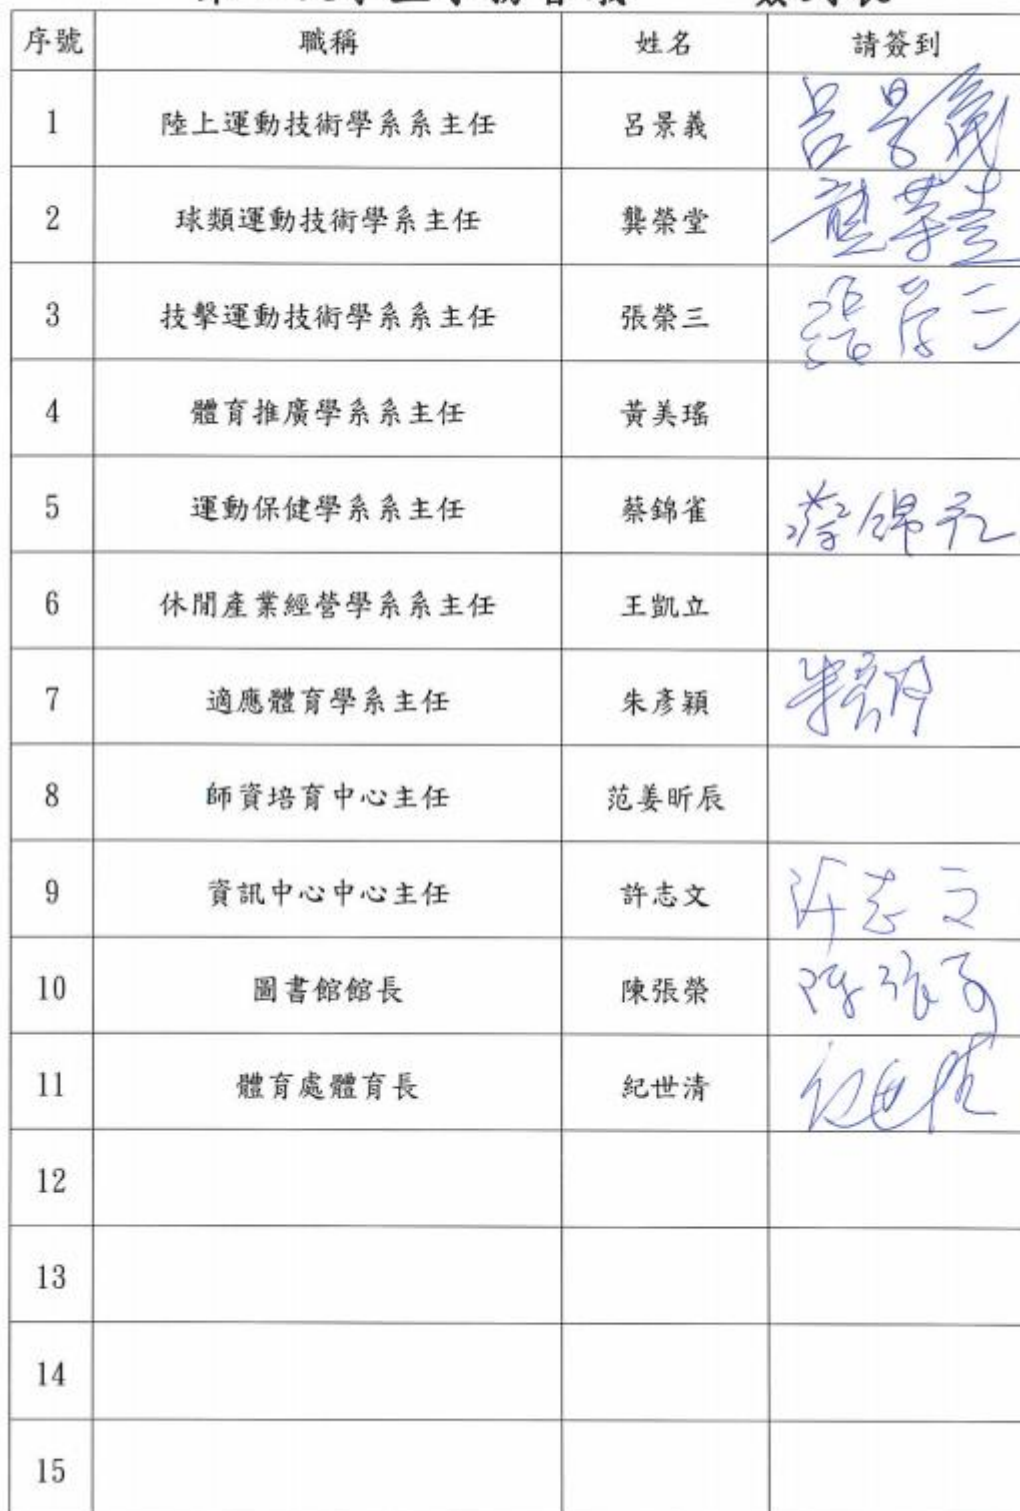 序號 職稱 姓名 請簽到
1 陸上運動技術學系系主任 呂景義 呂景義
2 球類運動技術學系主任 龔榮堂 龔榮堂
3 技擊運動技術學系系主任 張榮三 張榮三
4 體育推廣學系系主任 黃美瑤
5 運動保健學系系主任 蔡錦雀 蔡錦雀
6 休閒產業經營學系系主任 王凱立
7 適應體育學系主任 朱彥穎 朱彥穎
8 師資培育中心主任 范姜昕辰
9 資訊中心中心主任 許志文 許志文
10 圖書館館長 陳張榮 陳張榮
11 體育處體育長 紀世清 紀世清
12
13
14
15